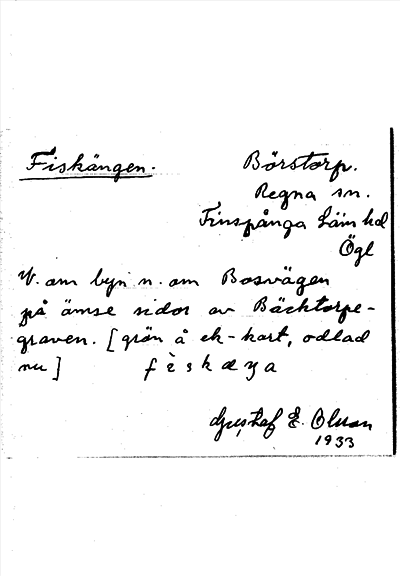 Fiskängen.
Börstorp.
Regna sn.
Finspånga Läns hd
Ögl
V. om byn n. om Bosvägen
på ömse sidor av Bäcktorps-
graven. [grön å ek-kart, odlad
nu] fèskæya
Gustaf E. Olsson
1933